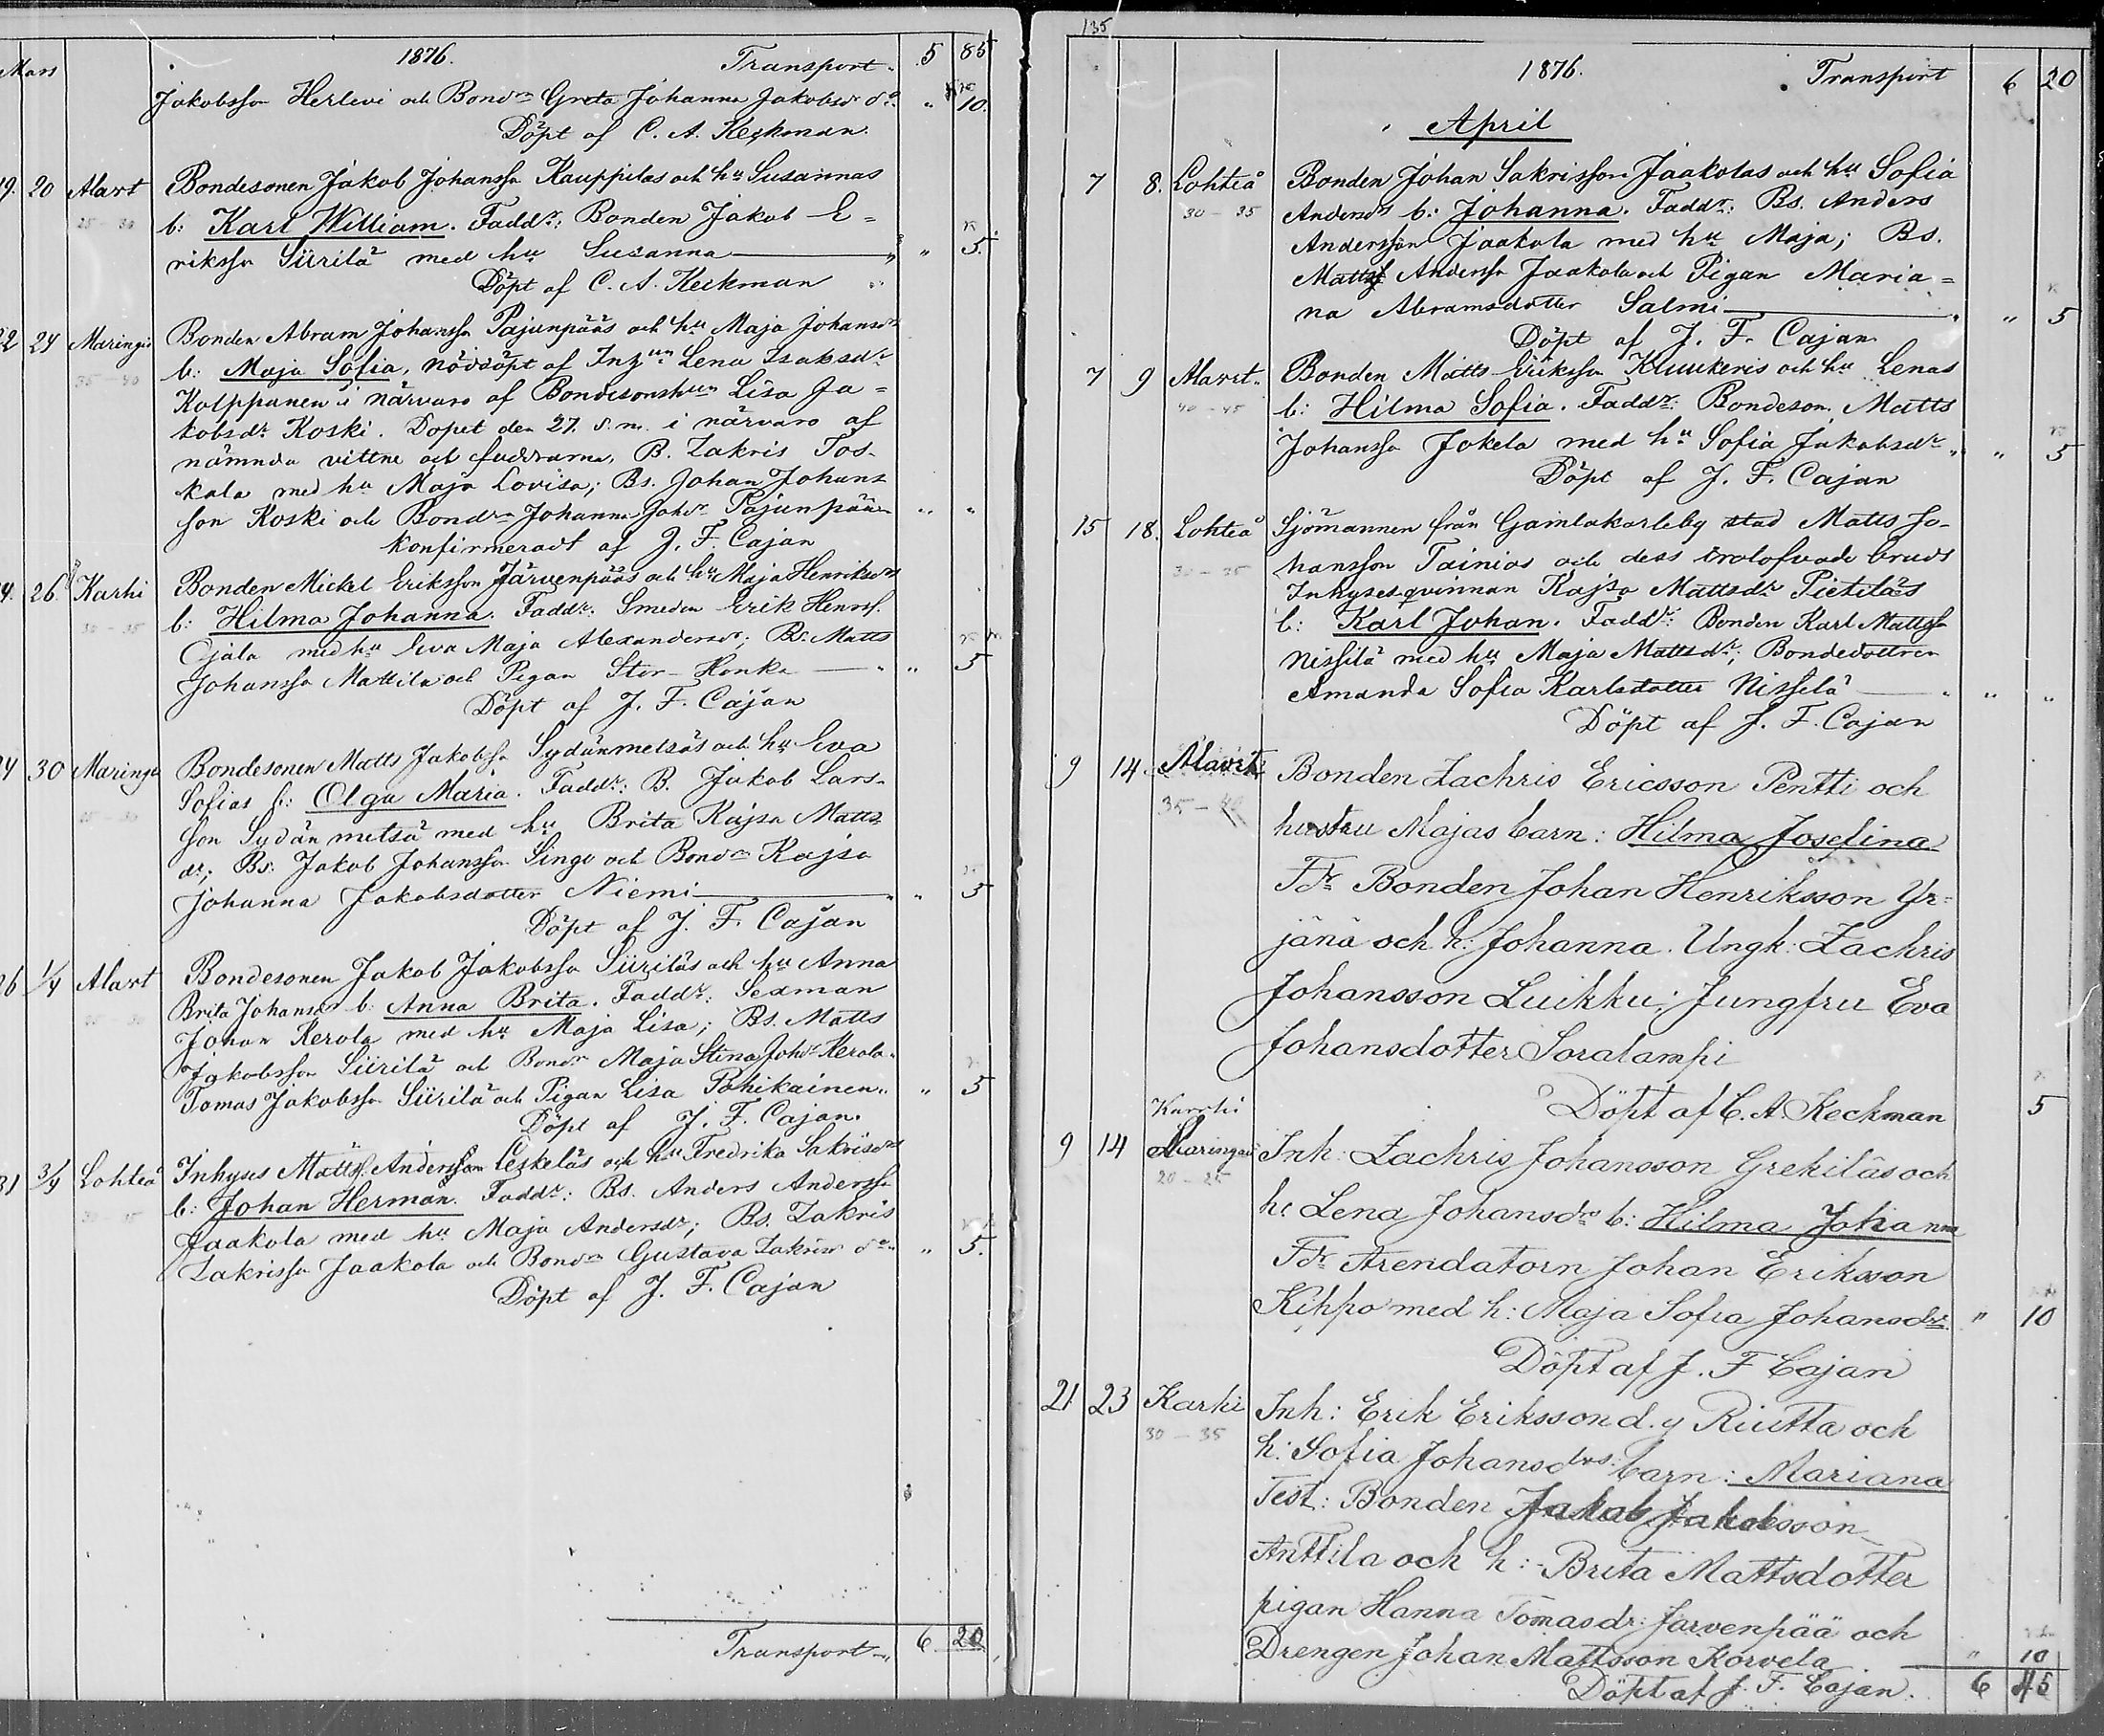 Mars 1876. Transport 5 85
Jakobsson Herlevi och Bondn Greta Johanna Jakobsdr do. " 10.
Döpt af C. A. Keckman.
19. 20 Alavt Bondesonen Jakob Johansson Kauppilas och hu Susannas
25-30 b: Karl William. Faddr: Bonden Jakob E=
riksson Siirilä med hu Susanna " 5.
Döpt af C. A. Keckman
22 24 Maringais Bonden Abram Johansson Pajunpääs och hu Maja Johansdrs
35-40 b: Maja Sofia, nöddöpt af Inhn Lena Isaksdr
Kalppanen i närvaro af Bondesonshun Lisa Ja=
kobsdr Koski. Döpet den 27. d.m. i närvaro af
nämnda vittne och faddrarna, B. Zakris Tos-
kala med hu Maja Lovisa; Bs. Johan Johans-
son Koski och Bondn Johanna Johdr Pajunpää " "
Konfirmeradt af J. F. Cajan
24. 26. Karhi Bonden Mickel Eriksson Järvenpääs och hu Maja Henriksdrs
30-35 b: Hilma Johanna. Faddr: Smeden Erik Henrss.
Ojala med hu Eva Maja Alexandersdr; Bs. Matts
Johansson Mattila och Pigan Stor-Honka " 5
Döpt af J. F. Cajan
24 30 Maringa Bondesonen Matts Jakobsson Sydänmetsäs och hu Eva
25-30 Sofias b: Olga Maria. Faddr: B. Jakob Lars-
son Sydänmetsä med hu Brita Kajsa Matts-
dr; Bs. Jakob Johansson Singo och Bondn Kajsa
Johanna Jakobsdotter Niemi " 5
Döpt af J. F. Cajan
26 1/4 Alavt Bondesonen Jakob Jakobsson Siiriläs och hu Anna
Brita Johansdr b: Anna Brita. Faddr: Sexman
Johan Kerola med hu Maja Lisa; Bs. Matts
Jakobsson Siirilä och Bondn Maja Stina Johdr Kerola.
Tomas Jakobsson Siirilä och Pigan Lisa Pohikainen " 5
Döpt af J. F. Cajan.
31 3/4 Lohteå Inhyses Mattss. Andersson Ceskeläs och hu Fredrika Sakrisdrs
30-35 b: Johan Herman. Faddr: Bs. Anders Andersson
Jaakola med hu Maja Andersdr; Bs. Zakris
Zakrisson Jaakola och Bondn Gustava Zakrisdr do. " 5.
Döpt af J. F. Cajan
Transport 6 20
135
1876. Transport 6 20
April
7 8. Lohteå Bonden Johan Sakrisson Jaakolas och hu Sofia
30-35 Andersdrs b: Johanna. Faddr: Bs. Anders
Andersson Jaakola med hu Maja; Bs.
Matts Andersson Jaakola och Pigan Maria=
na Abramsdotter Salmi " 5
Döpt af J. F. Cajan
7 9 Alavt. Bonden Matts Eriksson Kluukeris och hu Lenas
40-45 b: Hilma Sofia. Faddr: Bondeson. Matts
Johansson Jokela med hu Sofia Jakobsdr " 5
Döpt af J. F. Cajan
15 18. Lohteå Sjömannen från Gamlakarleby stad Matts Jo-
30-35 hansson Tainios och dess trolofvade bruds
Inhysesqvinnan Kajsa Mattsdr Pietiläs
b: Karl Johan. Faddr: Bonden Karl Mattsson
Nissilä med hu Maja Mattsdr; Bondedottren
Amanda Sofia Karlsdotter Nissilä " "
Döpt af J. F. Cajan
9 14 Alavit Bonden Zachris Ericsson Pentti och
35-40 hustru Majas barn: Hilma Josefina
Fdr Bonden Johan Henriksson Yr=
jänä och h: Johanna. Ungk: Zachris
Johansson Luikku; Jungfru Eva
Johansdotter Soralampi
Döpt af C. A. Keckman 5
Karhi
9 14 Maringais Inh: Zachris Johansson Grekiläs och
20-25 h: Lena Johansdrs b: Hilma Johanna
Fdr Arendatorn Johan Eriksson
Kippo med h: Maja Sofia Johansdr. " 10
Döpt af J. F Cajan
21 23 Karhi Inh: Erik Eriksson d.y Riutta och
30-35 h: Sofia Johansdrs: barn: Mariana
Test: Bonden Jakob Jakobsson
Anttila och h: Brita Mattsdotter
pigan Hanna Tomasdr: Jarvenpää och
Drengen Johan Mattsson Korvela " 10
Döpt af J. F. Cajan. 6 45